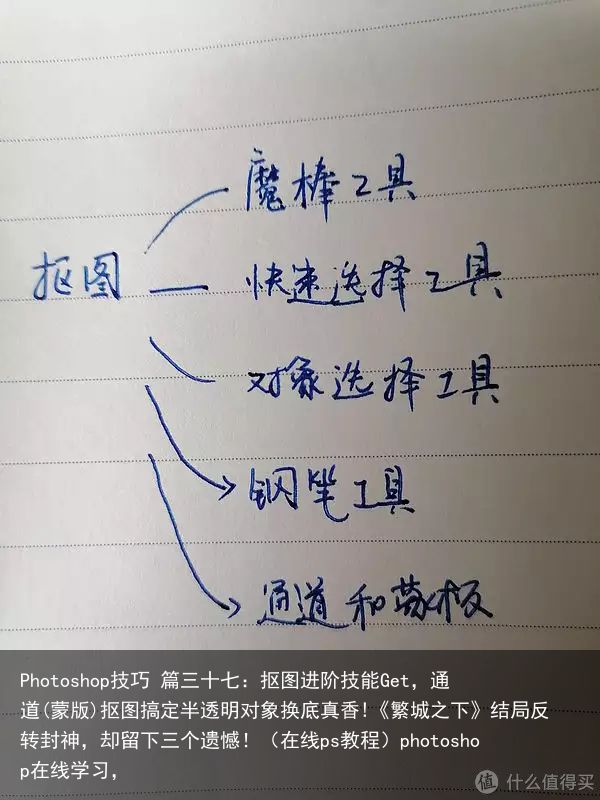 魔棒工具
抠图
快速选择工具
对象选择工具
钢笔工具
通道和蒙板
Photoshop技巧 篇三十七：抠图进阶技能Get，通
道(蒙版)抠图搞定半透明对象换底真香!《繁城之下》结局反
转封神，却留下三个遗憾！（在线ps教程）photosho
p在线学习，
值 什么值得买